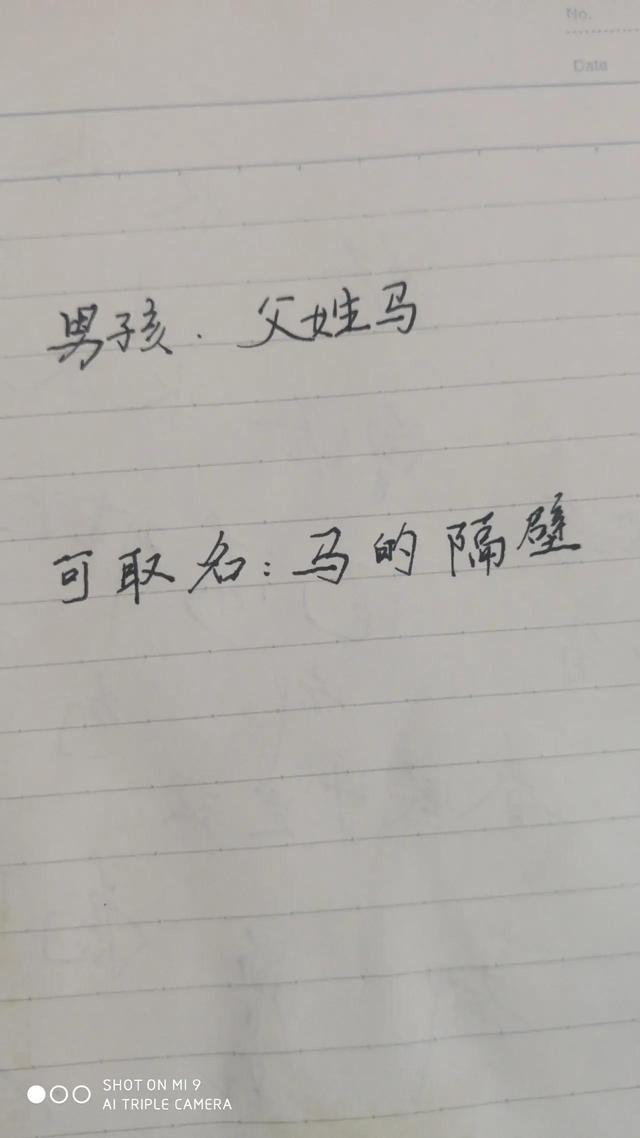 No.
Date
男孩. 父姓马
可取名:马的隔壁
SHOT ON MI 9
AI TRIPLE CAMERA